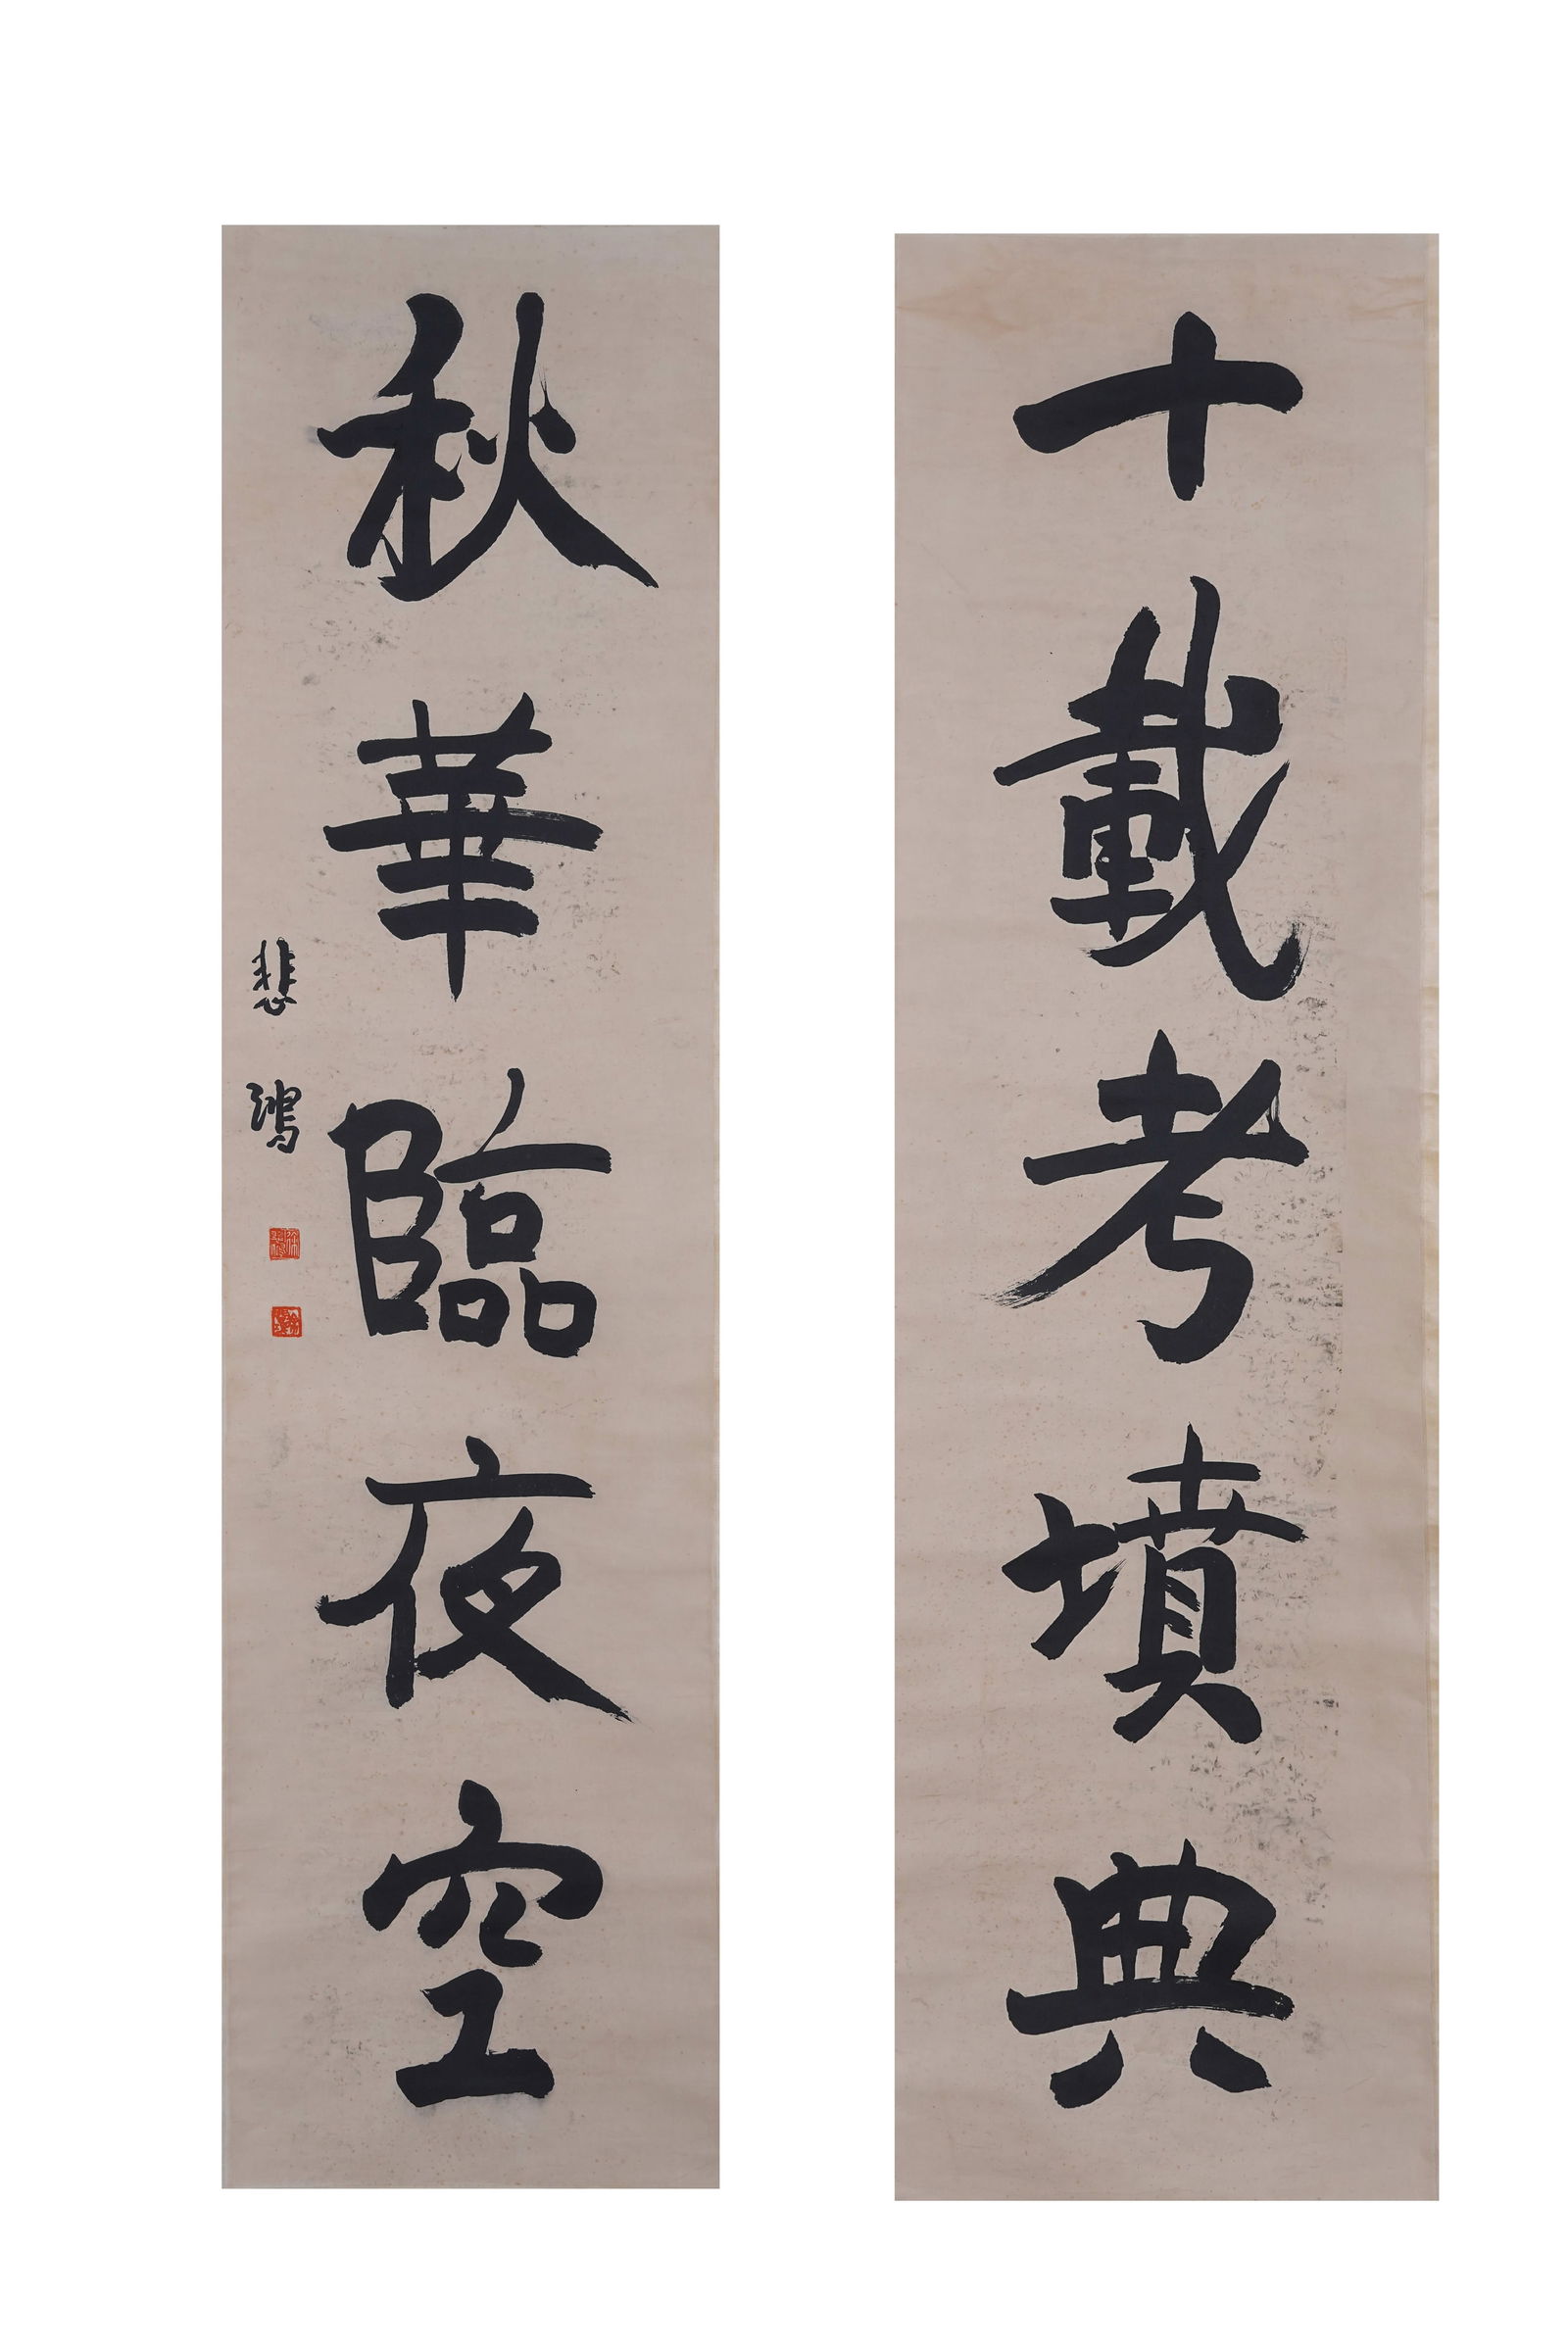 十載考墳典
秋華臨夜空
悲鴻